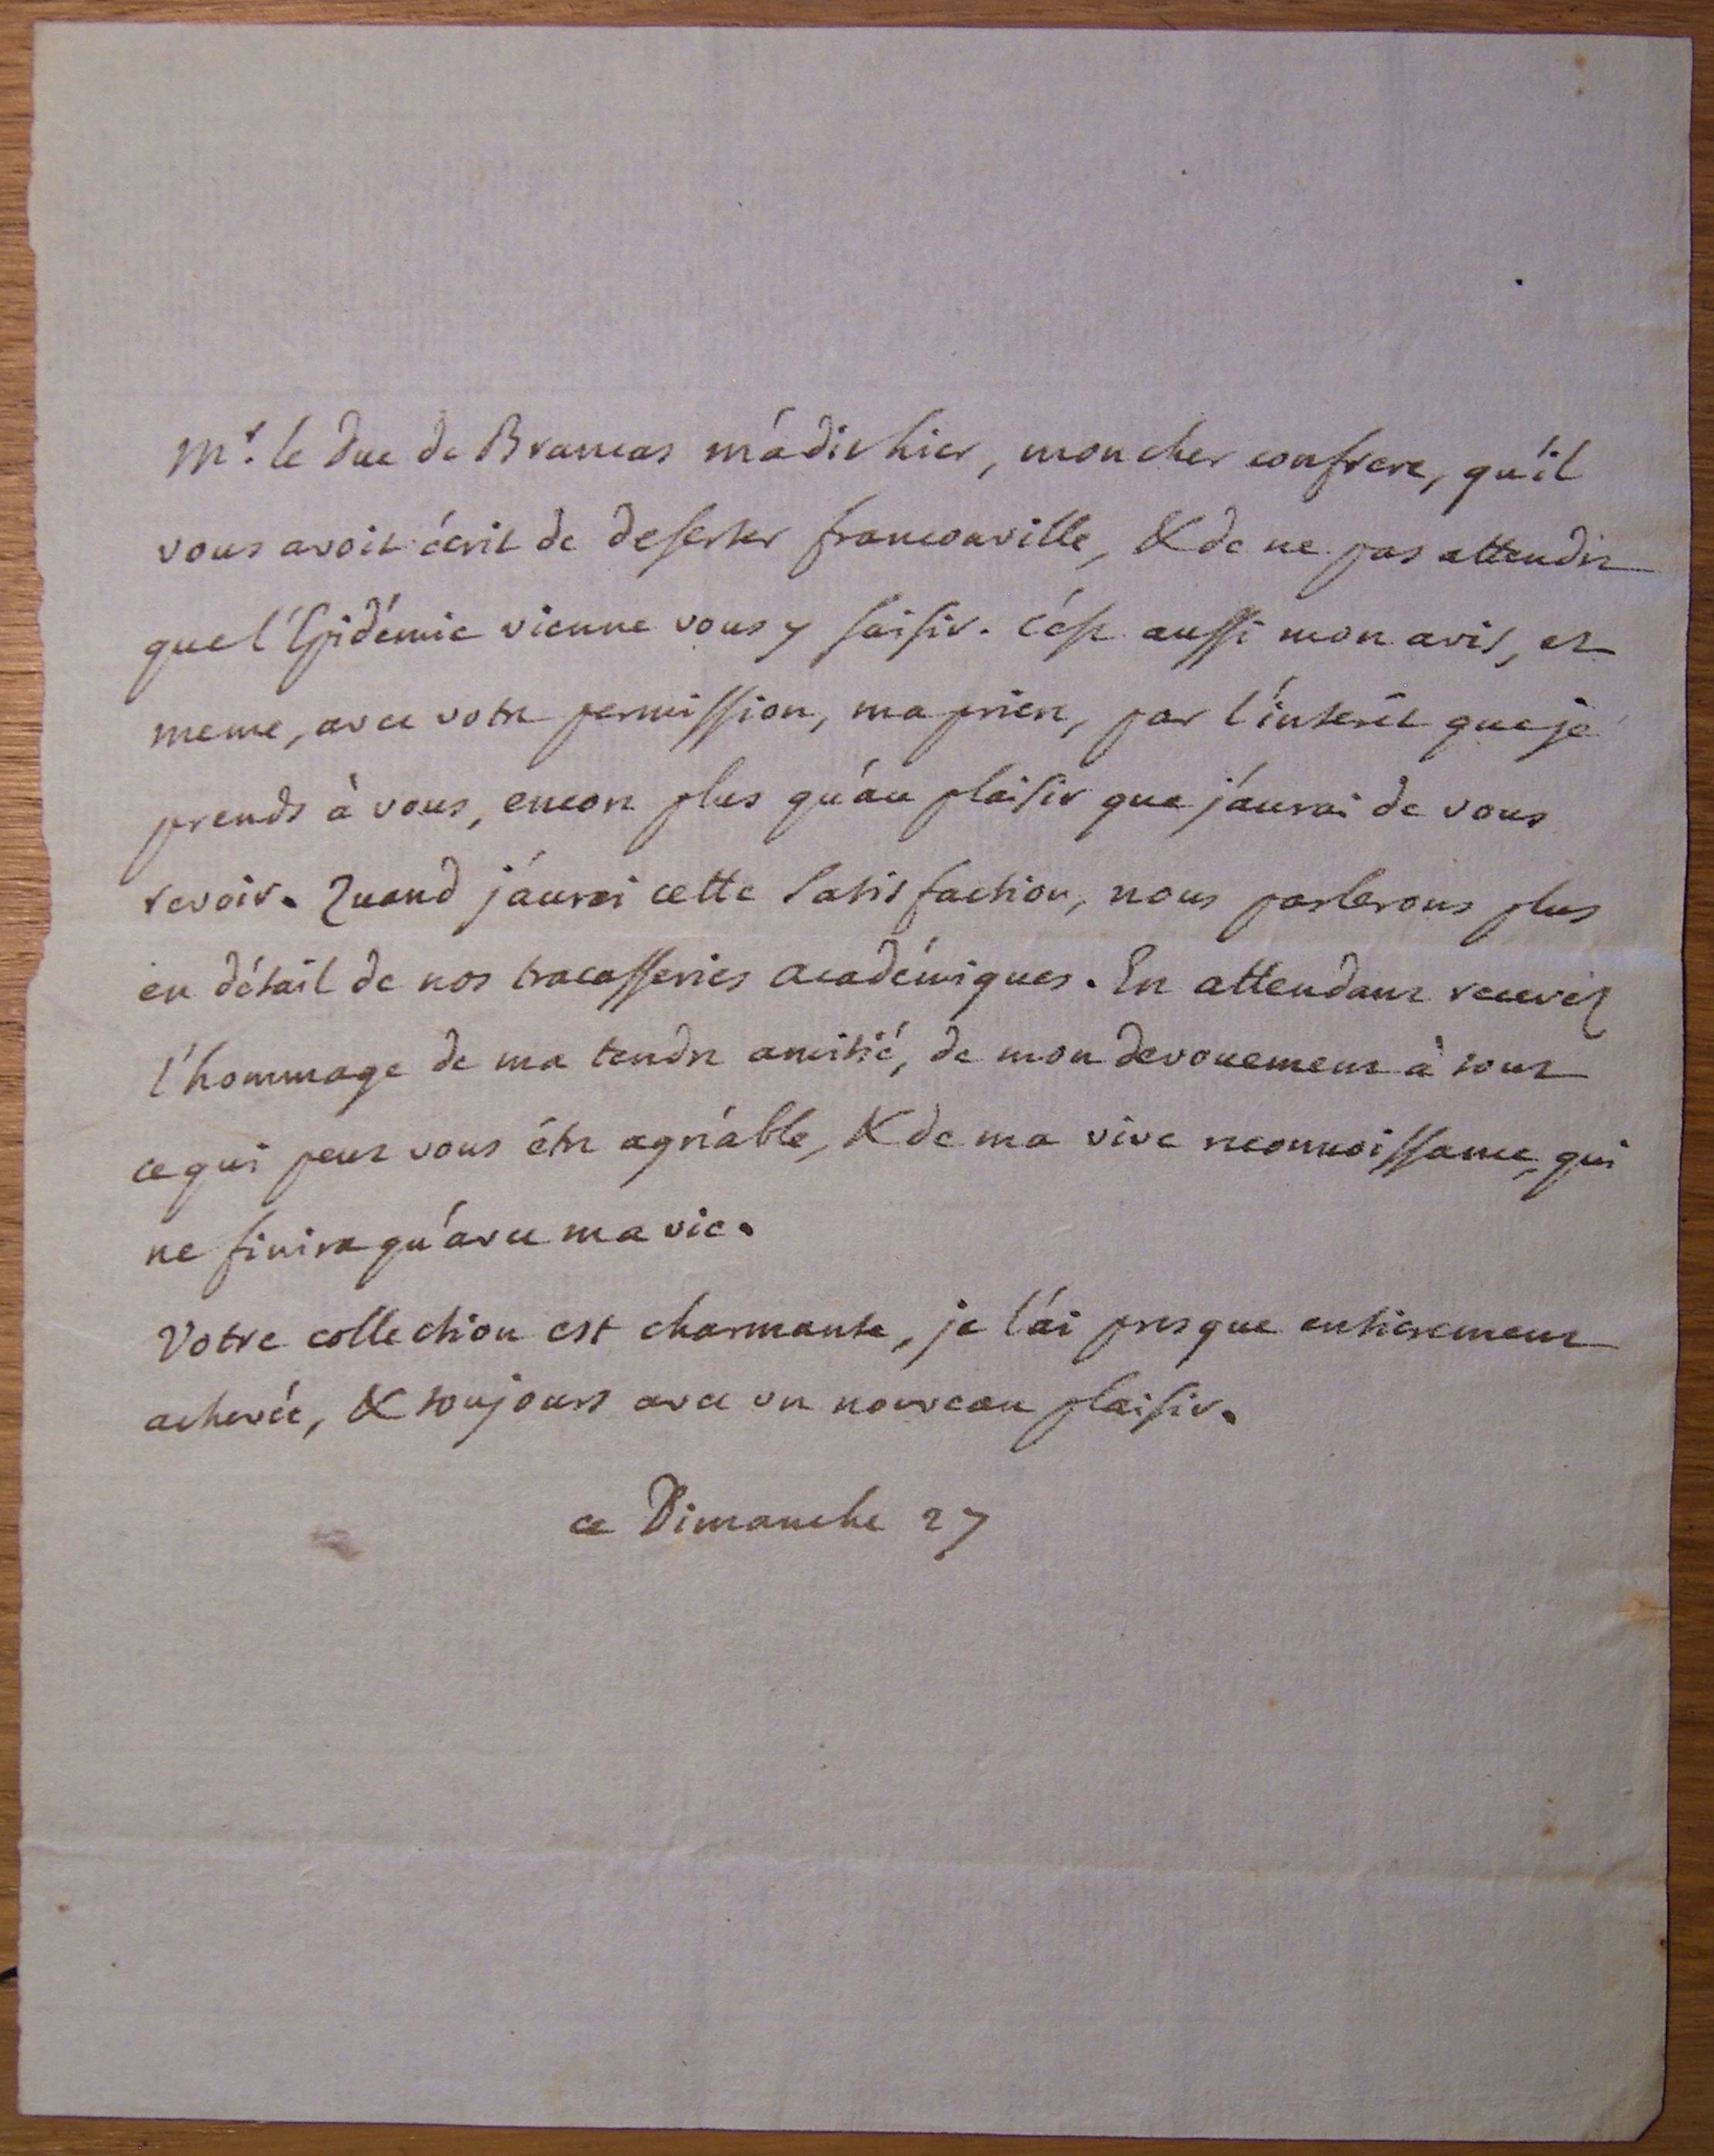 Mr. le duc de Brancas m'a dit hier, mon cher confrere, qu'il
vous avoit écrit de deserter franconville, & de ne pas attendre
que l'Epidémie vienne vous y saisir. C'est aussi mon avis, et
meme, avec votre permission, ma priere, par l'intérêt que je
prends à vous, encore plus qu'au plaisir que j'aurai de vous
revoir. Quand j'aurai cette satisfaction, nous parlerons plus
en détail de nos tracasseries académiques. En attendant recevez
l'hommage de ma tendre amitié, de mon devouement à tout
ce qui peut vous être agréable, & de ma vive reconnoissance, qui
ne finira qu'avec ma vie.
Votre collection est charmante, je l'ai presque entierement
achevée, & toujours avec un nouveau plaisir.
ce Dimanche 27